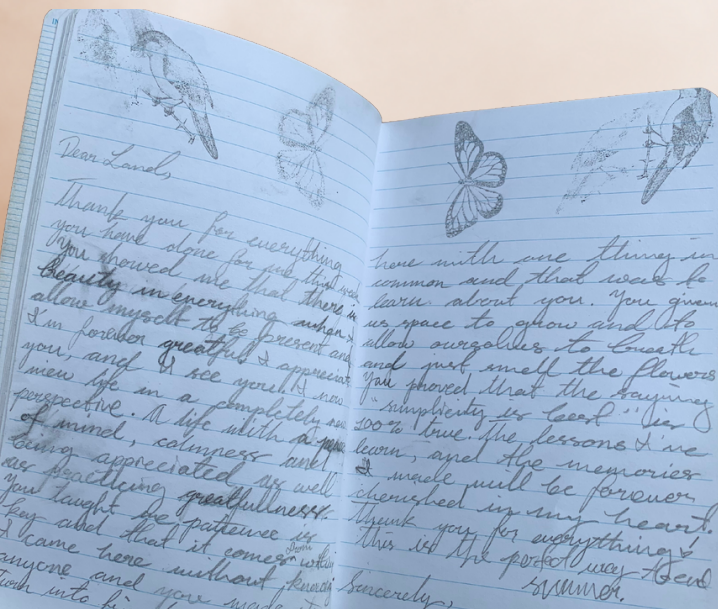 Dear Land,
Thank you for everything
you have done for me this week
You showed me that there is
beauty in everything when I
allow myself to be present and
I'm forever greatful I appreciate
you, and I see you! I now
view life in a completely new
perspective. A life with a
of mind, calmness and
being appreciated as well
as practicing greatfullness.
you taught me patience is
key and that it comes from within
I came here without knowing
anyone and you made it
turn into
here with one thing in
common and that was to
learn about you. You given
us space to grow and to
allow ourselves to breath
and just smell the flowers
You proved that the saying
"simplicity is best" is
100% true. The lessons I've
learn, and the memories
I made will be forever
cherished in my heart.
thank you for everything!
this is the perfect way to end
summer.
Sincerely,